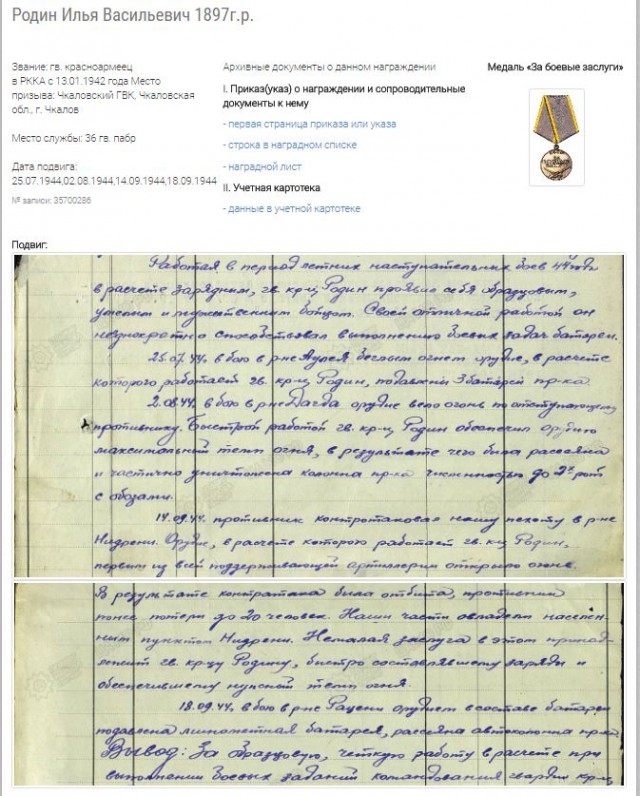 Родин Илья Васильевич 1897г.р.
Звание: гв. красноармеец
в РККА с 13.01.1942 года Место
призыва: Чкаловский ГВК, Чкаловская
обл., г. Чкалов
Место службы: 36 гв. пабр
Дата подвига:
25.07.1944,02.08.1944,14.09.1944,18.09.1944
№ записи: 35700286
Архивные документы о данном награждении
I. Приказ(указ) о награждении и сопроводительные
документы к нему
- первая страница приказа или указа
- строка в наградном списке
- наградной лист
II. Учетная картотека
- данные в учетной картотеке
Медаль «За боевые заслуги»
Подвиг:
Работая в период летних наступательных боев 44 года
в расчете зарядным, гв. кр-ц Родин проявил себя образцовым,
умелым и мужественным бойцом. Своей отличной работой он
способствовал выполнению боевых задач батареи.
25.07.44. в бою в р-не беглым огнем орудие, в расчете
которого работает гв. кр-ц Родин, подавлен 3 батареи пр-ка.
2.08.44. в бою в р-не Дагда орудие вело огонь по отступающему
противнику. Быстрой работой гв. кр-ц Родин обеспечил орудию
максимальный темп огня, в результате чего была рассеяна
и частично уничтожена колонна пр-ка численностью до 2х рот
с обозами.
14.09.44. противник контратаковал нашу пехоту в р-не
Нидрени. Орудие, в расчете которого работает гв. кр-ц Родин,
первым из всей поддерживающей артиллерии открыло огонь.
В результате контратака была отбита, противник
понес потери до 20 человек. Наши части овладели населен-
ным пунктом Нидрени. Немалая заслуга в этом принад-
лежит гв. кр-цу Родину, быстро составлявшему заряды и
обеспечившему нужный темп огня.
18.09.44. в бою в р-не Рацени орудием в составе батареи
подавлена минометная батарея, рассеяна автоколонна пр-ка.
Вывод: За образцовую, четкую работу в расчете при
выполнении боевых заданий командования гвардии кр-ц